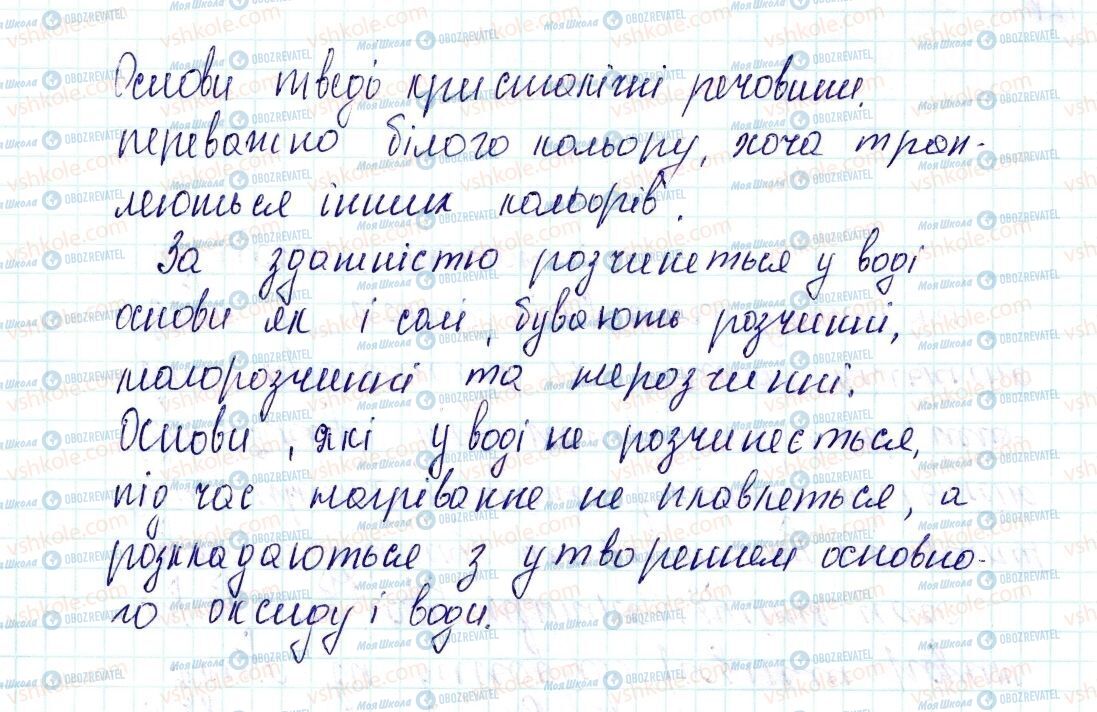 Основи тведі кристалічні речовини.
переважно білого кольору, хоча трап-
ляються інших кольорів.
За здатністю розчиняться у воді
основи як і солі, бувають розчинні,
малорозчинні та нерозчинні.
Основи, які у воді не розчиняється,
під час нагрівання не плавляться, а
розкладаються з утворенням основно-
го оксиду і води.